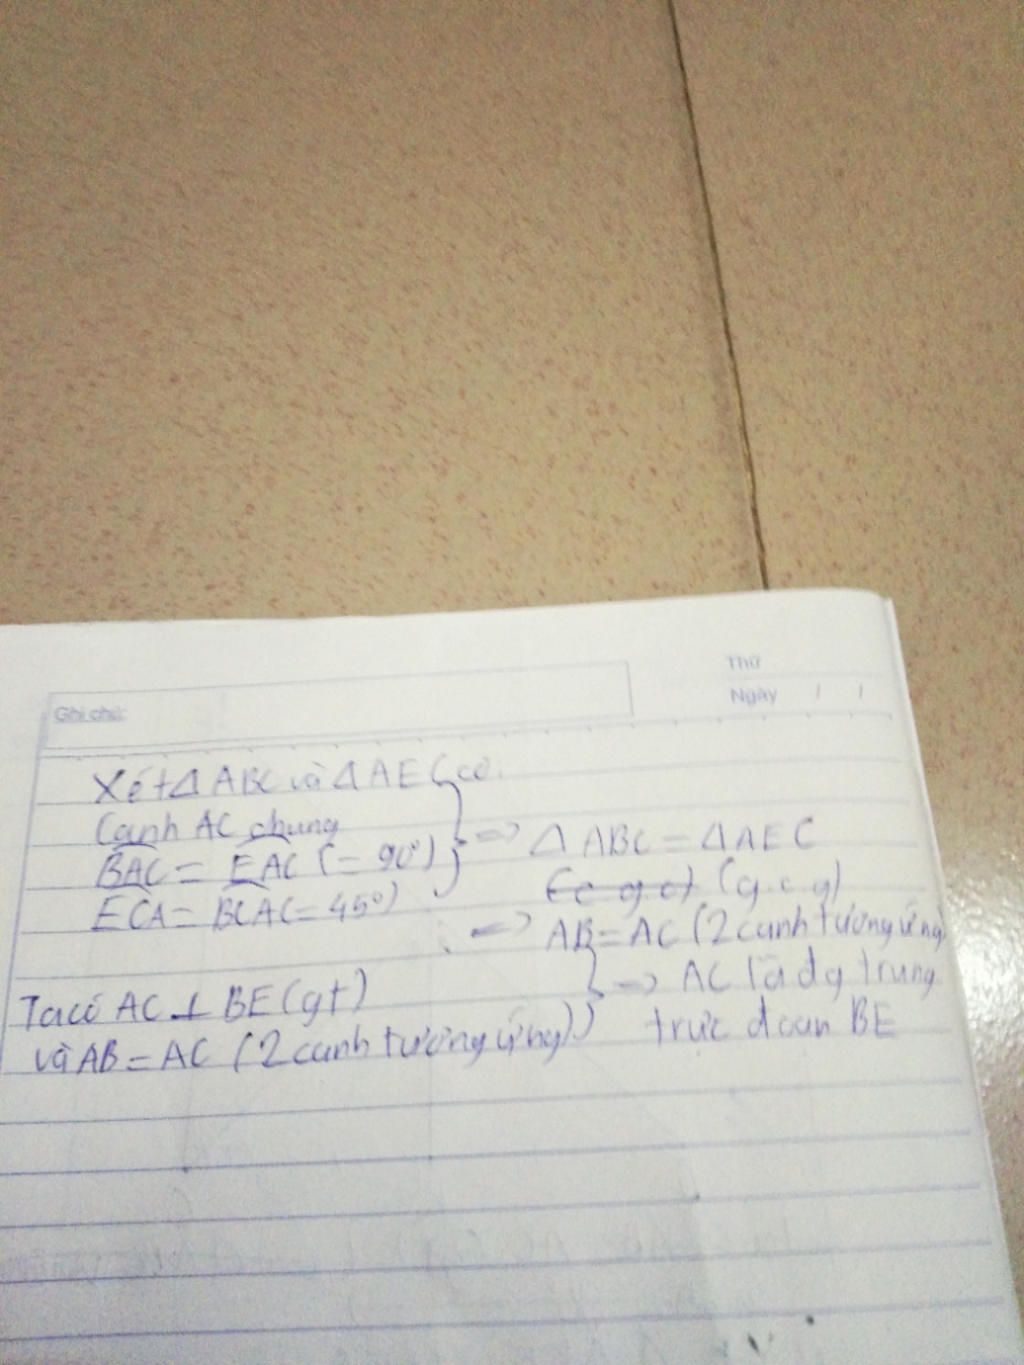 Ghi chú:
Thứ
Ngày / /
Xét Δ ABC và Δ AEC có.
Cạnh AC chung
BAC = EAC (= 90°)
ECA = BCA (= 45°)
=> Δ ABC = Δ AEC
(c g c) (g.c.g)
=> AB = AC (2 cạnh tương ứng)
Ta có AC ⊥ BE (gt)
và AB = AC (2 cạnh tương ứng)
=> AC là đg trung
trực đoạn BE